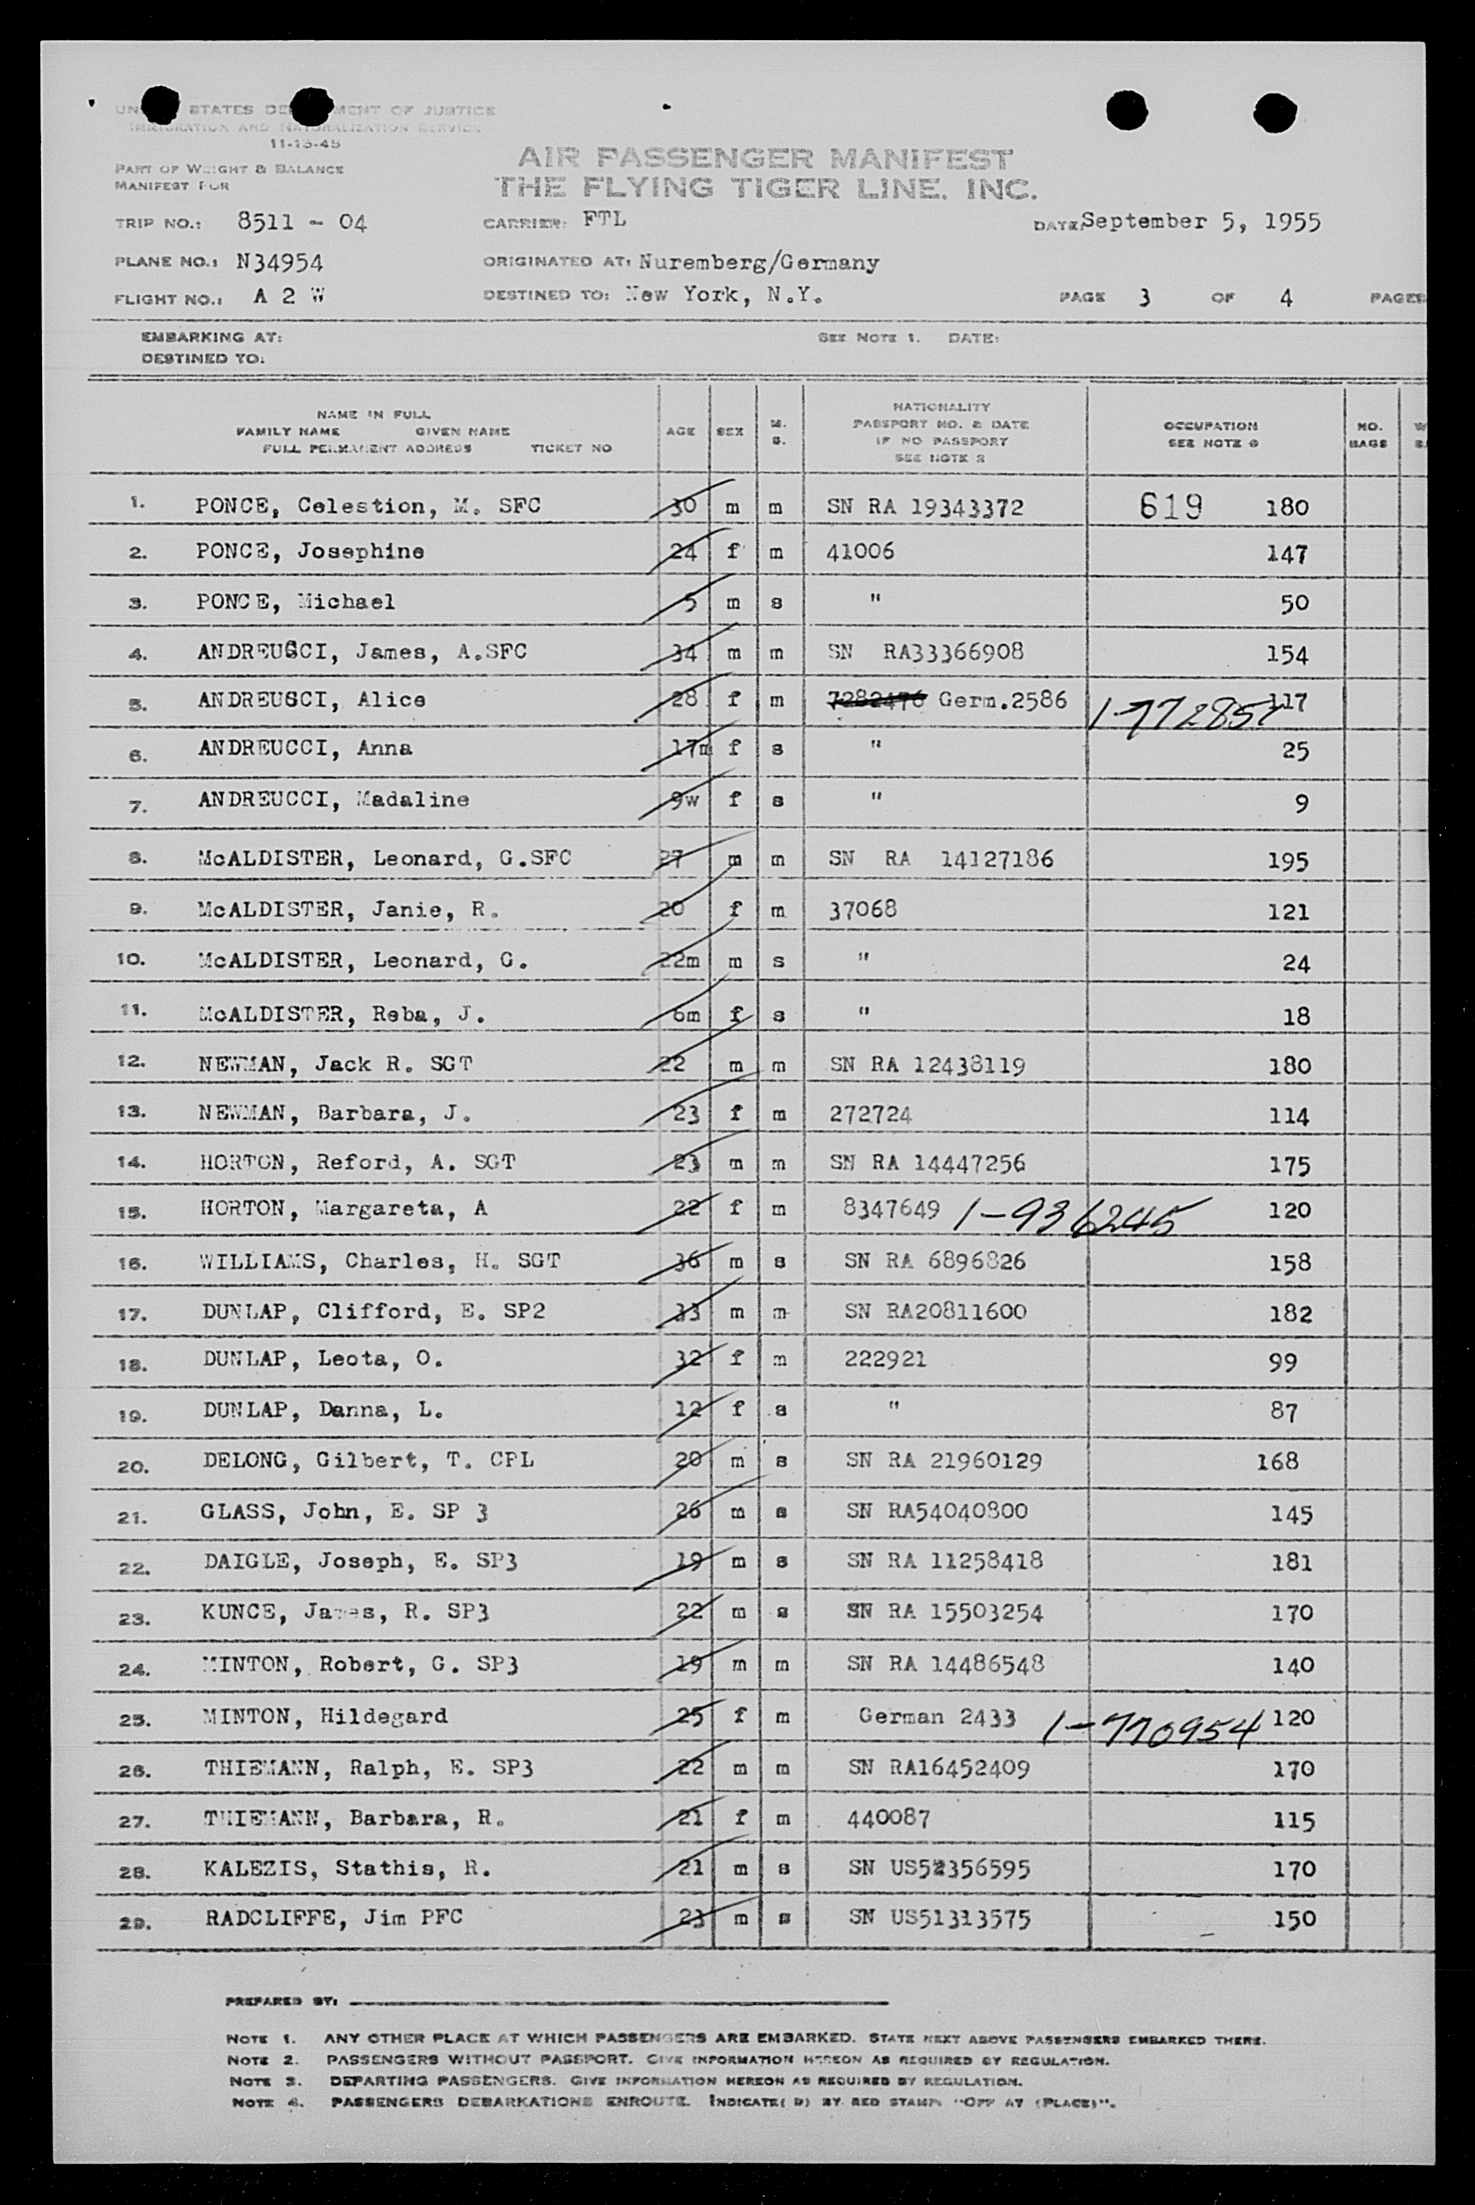 UNITED STATES DEPARTMENT OF JUSTICE
IMMIGRATION AND NATURALIZATION SERVICE
11-15-45
PART OF WEIGHT & BALANCE
MANIFEST FOR
AIR PASSENGER MANIFEST
THE FLYING TIGER LINE, INC.
TRIP NO.: 8511 - 04 CARRIER: FTL DATE: September 5, 1955
PLANE NO.: N34954 ORIGINATED AT: Nuremberg/Germany
FLIGHT NO.: A 2 W DESTINED TO: New York, N.Y. PAGE 3 OF 4 PAGES
EMBARKING AT: SEE NOTE 1. DATE:
DESTINED TO:
NAME IN FULL
FAMILY NAME GIVEN NAME
FULL PERMANENT ADDRESS TICKET NO
AGE SEX M. S.
NATIONALITY
PASSPORT NO. & DATE
IF NO PASSPORT
SEE NOTE 2
OCCUPATION
SEE NOTE
NO.
BAGS
1. PONCE, Celestion, M. SFC 30 m m SN RA 19343372 619 180
2. PONCE, Josephine 24 f m 41006 147
3. PONCE, Michael 5 m s " 50
4. ANDREUCCI, James, A.SFC 34 m m SN RA33366908 154
5. ANDREUCCI, Alice 28 f m 7282476 Germ.2586 117
6. ANDREUCCI, Anna 17m f s " 25
7. ANDREUCCI, Madaline 9w f s " 9
8. McALDISTER, Leonard, G.SFC 27 m m SN RA 14127186 195
9. McALDISTER, Janie, R. 20 f m 37068 121
10. McALDISTER, Leonard, G. 22m m s " 24
11. McALDISTER, Reba, J. 6m f s " 18
12. NEWMAN, Jack R. SGT 22 m m SN RA 12438119 180
13. NEWMAN, Barbara, J. 23 f m 272724 114
14. HORTON, Reford, A. SGT 23 m m SN RA 14447256 175
15. HORTON, Margareta, A 22 f m 8347649 1-936245 120
16. WILLIAMS, Charles, H. SGT 36 m s SN RA 6896826 158
17. DUNLAP, Clifford, E. SP2 33 m m SN RA20811600 182
18. DUNLAP, Leota, O. 32 f m 222921 99
19. DUNLAP, Danna, L. 12 f s " 87
20. DELONG, Gilbert, T. CPL 20 m s SN RA 21960129 168
21. GLASS, John, E. SP 3 26 m s SN RA54040800 145
22. DAIGLE, Joseph, E. SP3 19 m s SN RA 11258418 181
23. KUNCE, James, R. SP3 22 m s SN RA 15503254 170
24. MINTON, Robert, G. SP3 19 m m SN RA 14486548 140
25. MINTON, Hildegard 25 f m German 2433 1-770954 120
26. THIEMANN, Ralph, E. SP3 22 m m SN RA16452409 170
27. THIEMANN, Barbara, R. 21 f m 440087 115
28. KALEZIS, Stathis, R. 21 m s SN US52356595 170
29. RADCLIFFE, Jim PFC 23 m s SN US51313575 150
PREPARED BY:
NOTE 1. ANY OTHER PLACE AT WHICH PASSENGERS ARE EMBARKED. STATE NEXT ABOVE PASSENGERS EMBARKED THERE.
NOTE 2. PASSENGERS WITHOUT PASSPORT. GIVE INFORMATION HEREON AS REQUIRED BY REGULATION.
NOTE 3. DEPARTING PASSENGERS. GIVE INFORMATION HEREON AS REQUIRED BY REGULATION.
NOTE 4. PASSENGERS DEBARKATIONS ENROUTE. INDICATE( D) BY RED STAMP, "OFF AT (PLACE)".